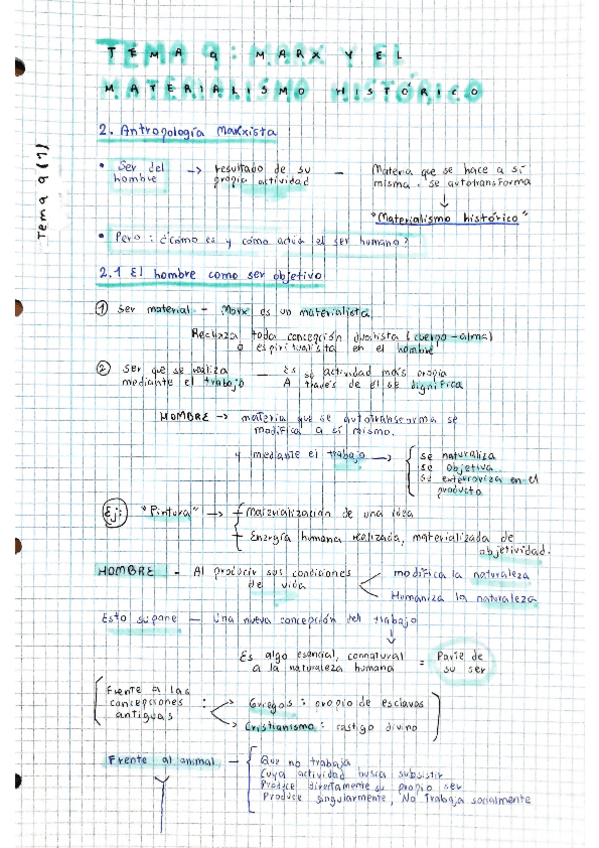 TEMA 9: MARX Y EL
MATERIALISMO HISTÓRICO
Tema 9 (1)
2. Antropología Marxista
• Ser del hombre → resultado de su propia actividad — Materia que se hace a sí misma. se autotransforma
↓
"Materialismo histórico"
• Pero: ¿cómo es y cómo actúa el ser humano?
2.1 El hombre como ser objetivo
① Ser material - Marx es un materialista
Rechaza toda concepción dualista (cuerpo-alma)
o espiritualista en el hombre
② Ser que se realiza mediante el trabajo — Es su actividad más propia
A través de él se dignifica
HOMBRE → materia que se autotransforma se
modifica a sí mismo.
y mediante el trabajo →
se naturaliza
se objetiva
se exterioriza en el
producto
Ej: "Pintura" → + Materialización de una idea
+ Energía humana realizada, materializada de
objetividad.
HOMBRE - Al producir sus condiciones
de vida
modifica la naturaleza
Humaniza la naturaleza
Esto supone — Una nueva concepción del trabajo
↓
Es algo esencial, connatural
a la naturaleza humana = Parte de
su ser
Frente a las
concepciones
antiguas :
Griegos: propio de esclavos
Cristianismo: castigo divino
Frente al animal —
Que no trabaja
Cuya actividad busca subsistir
Produce directamente su propio ser
Produce singularmente, No Trabaja socialmente